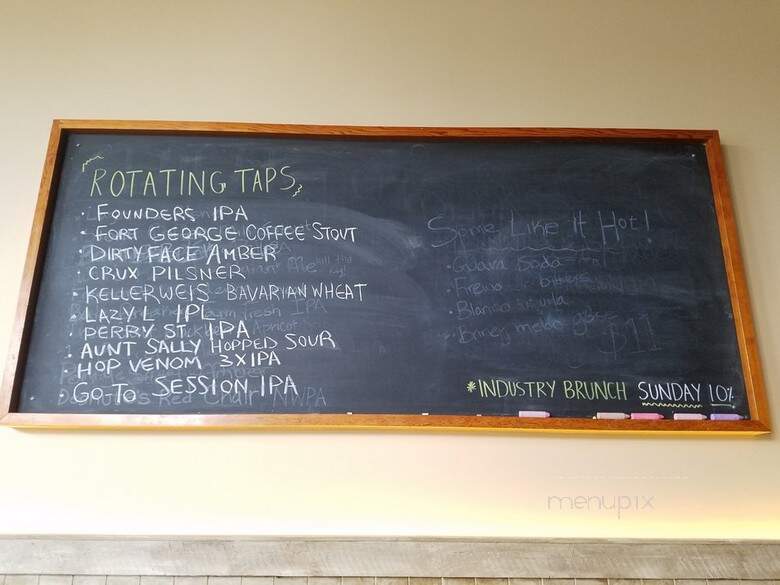 ROTATING TAPS
· FOUNDERS IPA
· FORT GEORGE COFFEE STOUT
· DIRTYFACE AMBER
· CRUX PILSNER
· KELLERWEIS BAVARIAN WHEAT
· LAZY L IPL
· PERRY ST. IPA
· AUNT SALLY HOPPED SOUR
· HOP VENOM 3XIPA
GO-TO SESSION IPA
Red Chair NWPA
Some Like it Hot!
· Guava Soda
· bitters
· Blanco
$11
*INDUSTRY BRUNCH SUNDAY 10%
menupix